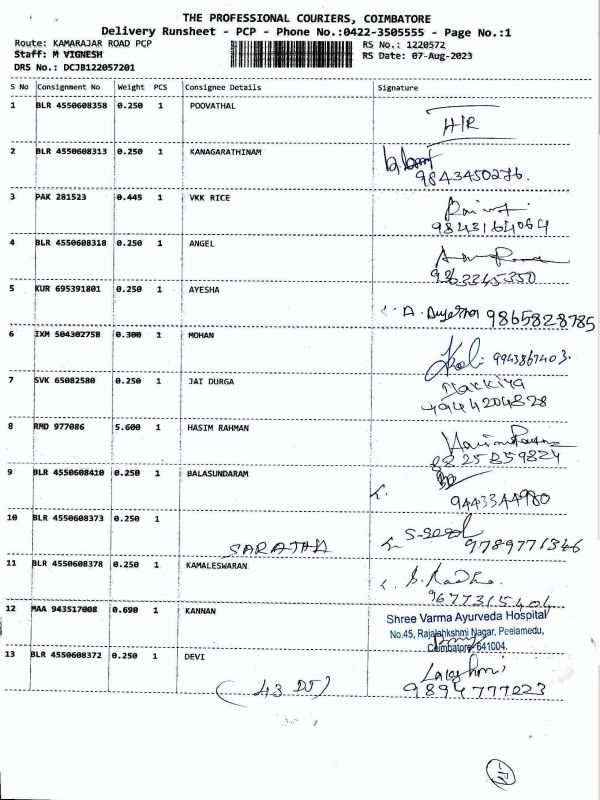 THE PROFESSIONAL COURIERS, COIMBATORE
Delivery Runsheet - PCP - Phone No.:0422-3505555 - Page No.:1
Route: KAMARAJAR ROAD PCP
RS No.: 1220572
Staff: M VIGNESH
RS Date: 07-Aug-2023
DRS No.: DCJB122057201
S No Consignment No Weight PCS Consignee Details Signature
1 BLR 4550608358 0.250 1 POOVATHAL
H/R
2 BLR 4550608313 0.250 1 KANAGARATHINAM
9843450276.
3 PAK 281523 0.445 1 VKK RICE
9843164064
4 BLR 4550608318 0.250 1 ANGEL
9363345350
5 KUR 695391801 0.250 1 AYESHA
9865828785
6 IXM 504302758 0.300 1 MOHAN
9943867403.
7 SVK 65082580 0.250 1 JAI DURGA
9444204828
8 RMD 977086 5.600 1 HASIM RAHMAN
8825859824
9 BLR 4550608410 0.250 1 BALASUNDARAM
9443344980
10 BLR 4550608373 0.250 1
SARATHA
9789771346
11 BLR 4550608378 0.250 1 KAMALESWARAN
S. Radha
9677315404
12 MAA 943517008 0.690 1 KANNAN
Shree Varma Ayurveda Hospital
No.45, Rajalahkshmi Nagar, Peelamedu,
Coimbatore 641004.
13 BLR 4550608372 0.250 1 DEVI
9894777023